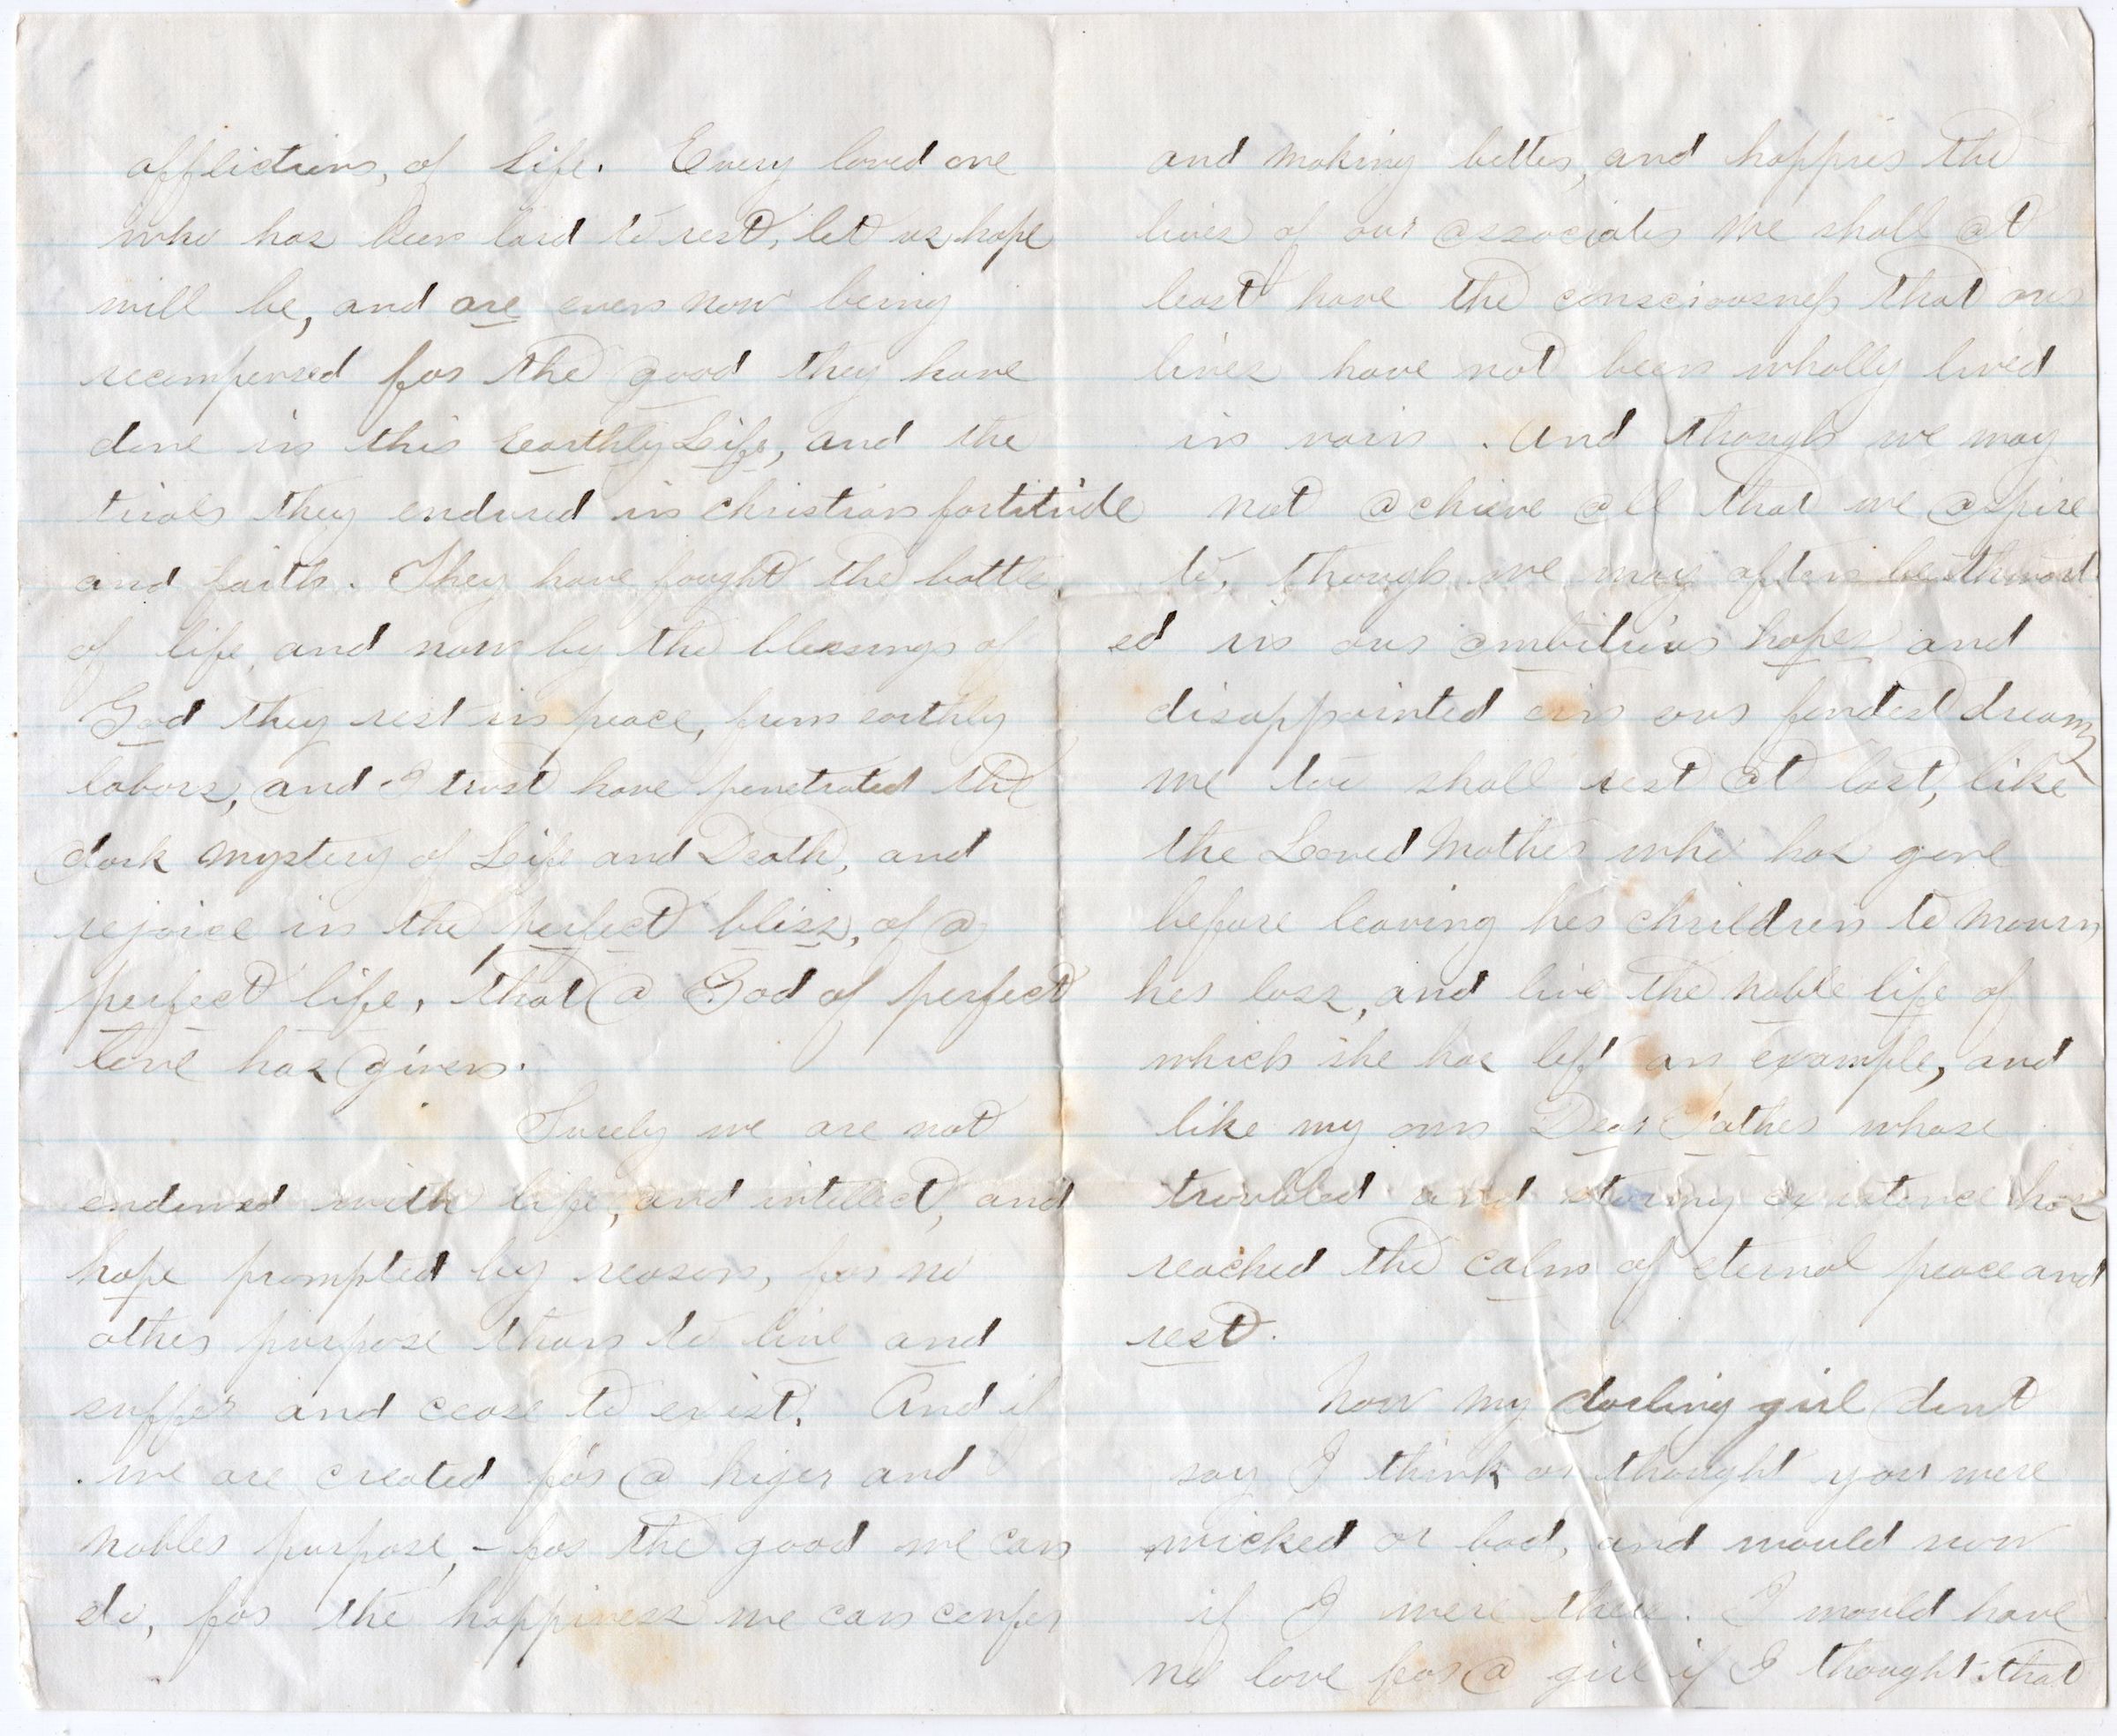 afflictions, of Life. Every loved one
who has been laid to rest, let us hope
will be, and are even now being
recompensed for the good they have
done in this earthly Life, and the
trials they endured in christian fortitude
and faith. They have fought the battle
of life, and now by the blessings of
God they rest in peace, from earthly
labors, and I trust have penetrated the
dark mystery of Life and Death, and
rejoice in the perfect bliss, of a
perfect life, that a God of perfect
love has given.
Surely we are not
endowed with life, and intellect, and
hope prompted by reason, for no
other purpose than to live and
suffer and cease to exist. And if
we are created for a higer and
nobler purpose, - for the good we can
do, for the happiness we can confer
and making better, and happier the
lives of our associates we shall at
least have the consciousness that our
lives have not been wholly lived
in vain. And though we may
not achieve all that we aspire
to, though we may often be thwart
ed in our ambitious hopes and
disappointed in our fondest dreams
we too shall rest at last, like
the Loved Mother who has gone
before leaving her children to mourn
her loss, and live the noble life of
which she has left an example, and
like my own Dear Father whose
troubled and stormy existence has
reached the calm of eternal peace and
rest.
Now my darling girl dont
say I think or thought you were
wicked or bad, and would now
if I were there. I would have
no love for a girl if I thought that